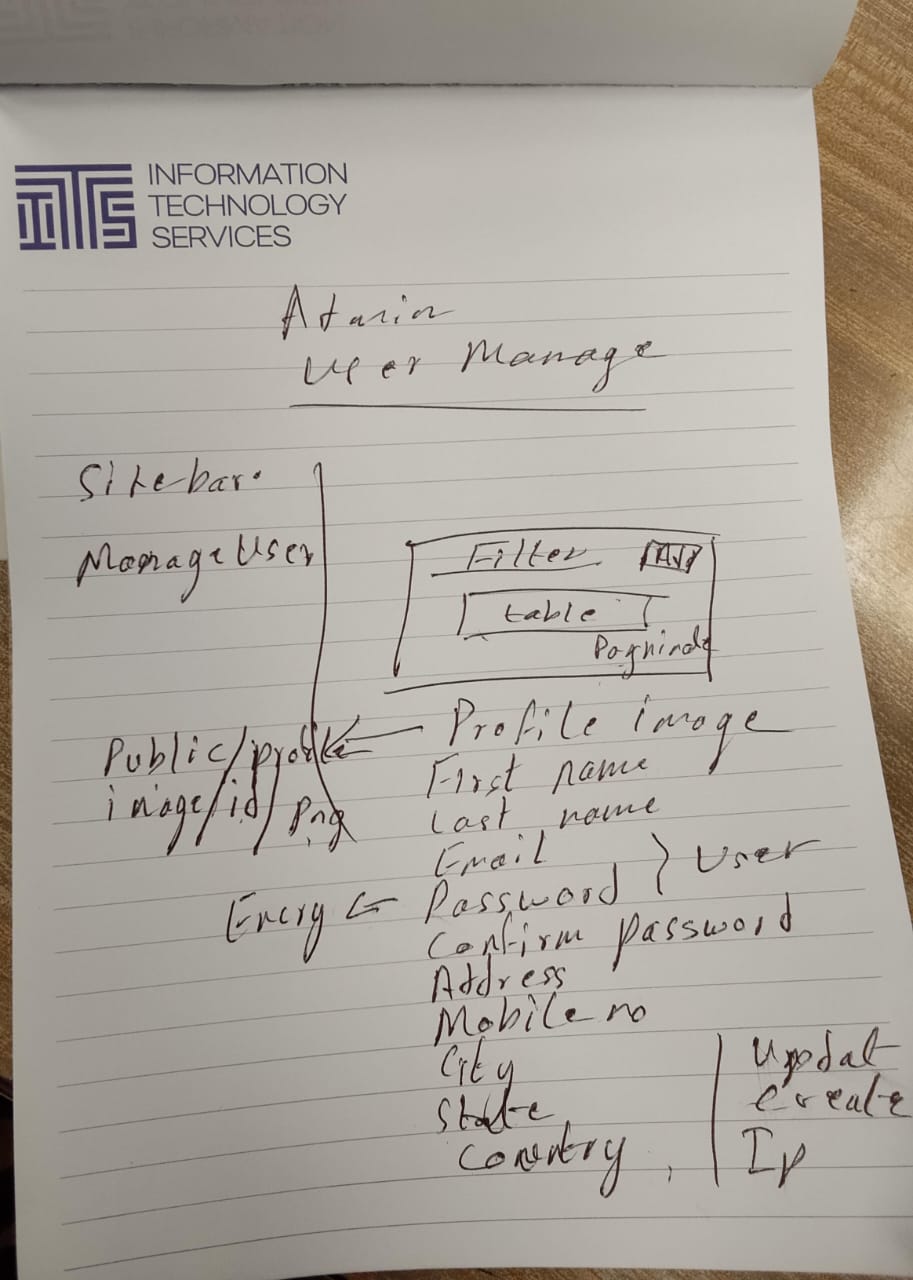 INFORMATION
TECHNOLOGY
SERVICES
Admin
User Manage
Sitebar.
Manage User
Filter
table
Public/profile
image/id/png
Profile image
First name
Last name
Email
Password } User
Encry
Confirm password
Address
Mobile no
City
State
Country,
Updat
Create
Ip